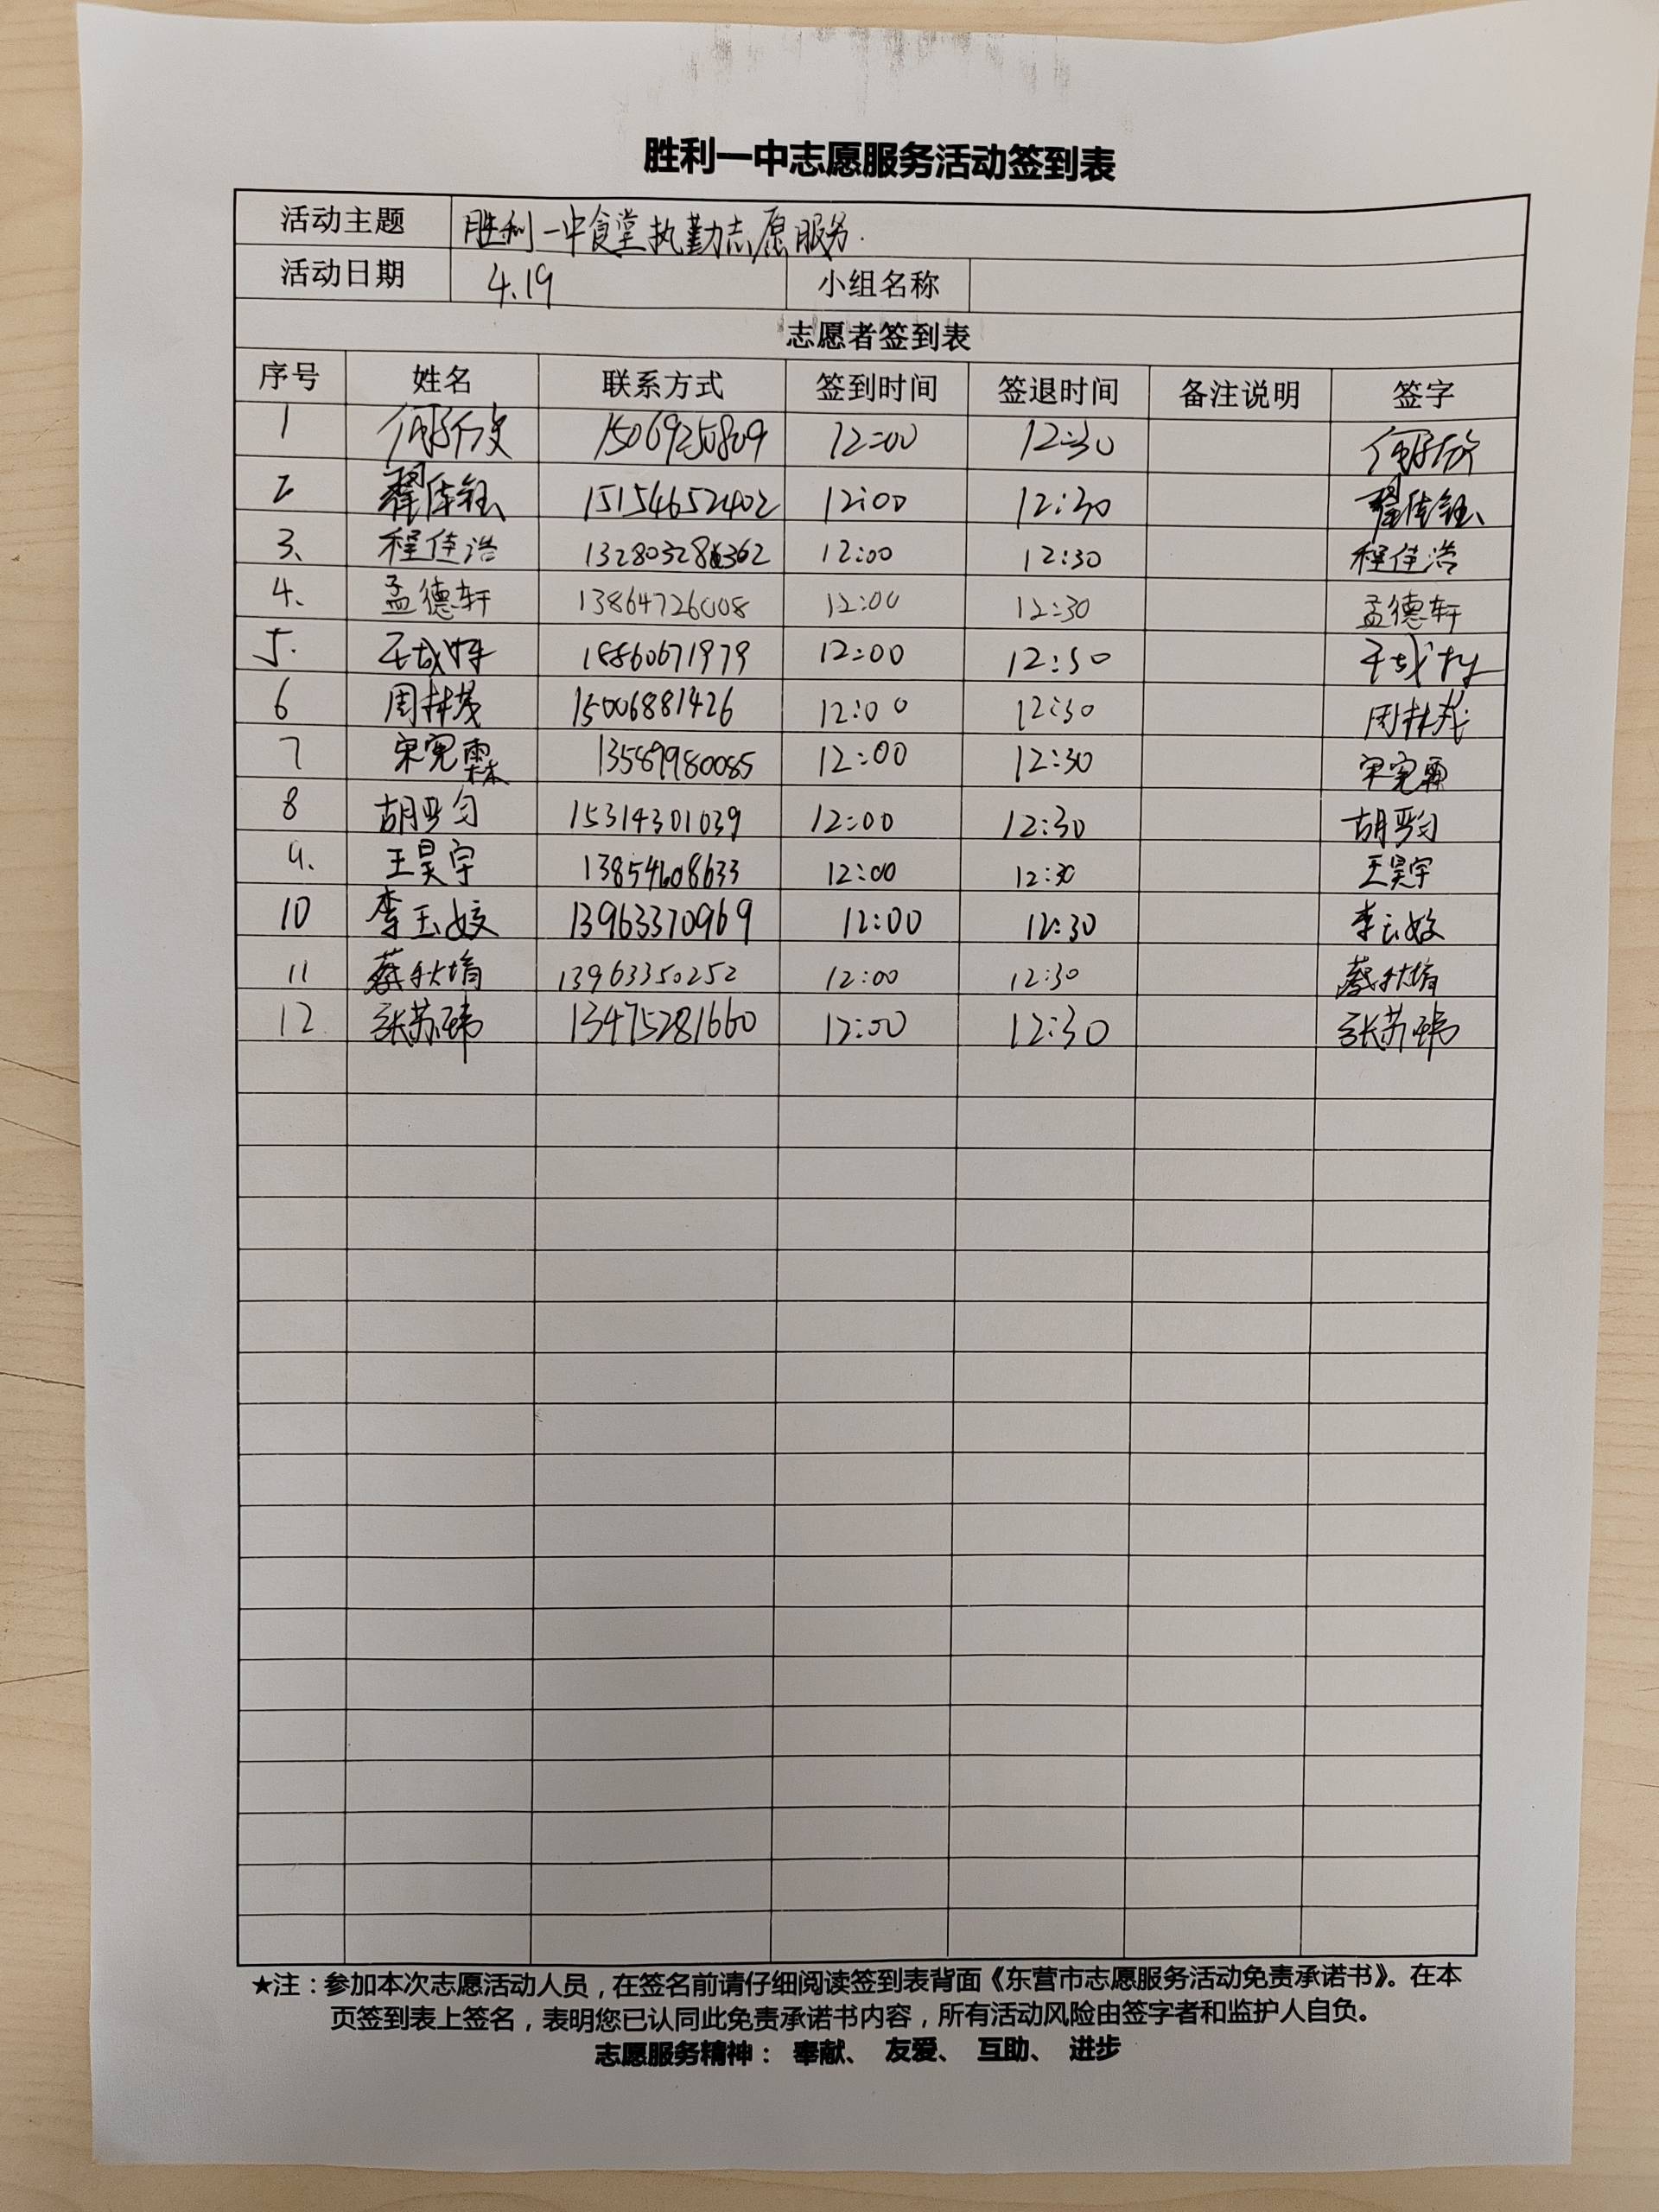 胜利一中志愿服务活动签到表
活动主题 胜利一中食堂执勤志愿服务.
活动日期 4.19 小组名称
志愿者签到表
序号 姓名 联系方式 签到时间 签退时间 备注说明 签字
1 15069250809 12:00 12:30
2 翟佳钰 15154652402 12:00 12:30 翟佳钰
3、 程佳浩 12:00 12:30 程佳浩
4、 孟德轩 13864726008 12:00 12:30 孟德轩
5. 18860671979 12:00 12:30
6 周林茂 15006881426 12:00 12:30 周林茂
7 13589980085 12:00 12:30
8 胡罗匀 15314301039 12:00 12:30
9. 王昊宇 13854608633 12:00 12:30 王昊宇
10 李玉姣 13963370969 12:00 12:30 李玉姣
11 蔡秋堉 13963350252 12:00 12:30 蔡秋堉
12 张苏玮 13475281660 12:00 12:30 张苏玮
★注：参加本次志愿活动人员，在签名前请仔细阅读签到表背面《东营市志愿服务活动免责承诺书》。在本
页签到表上签名，表明您已认同此免责承诺书内容，所有活动风险由签字者和监护人自负。
志愿服务精神： 奉献、 友爱、 互助、 进步